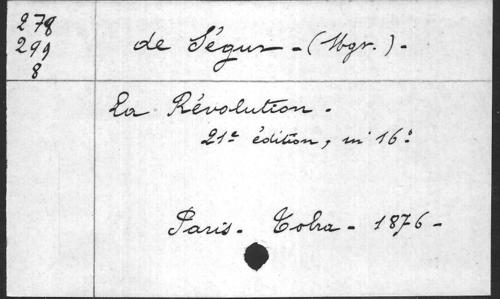 278
299
8
de Ségur - (Mgr.) -
La Révolution.
21e édition, in 16º
Paris - Tolra - 1876 -